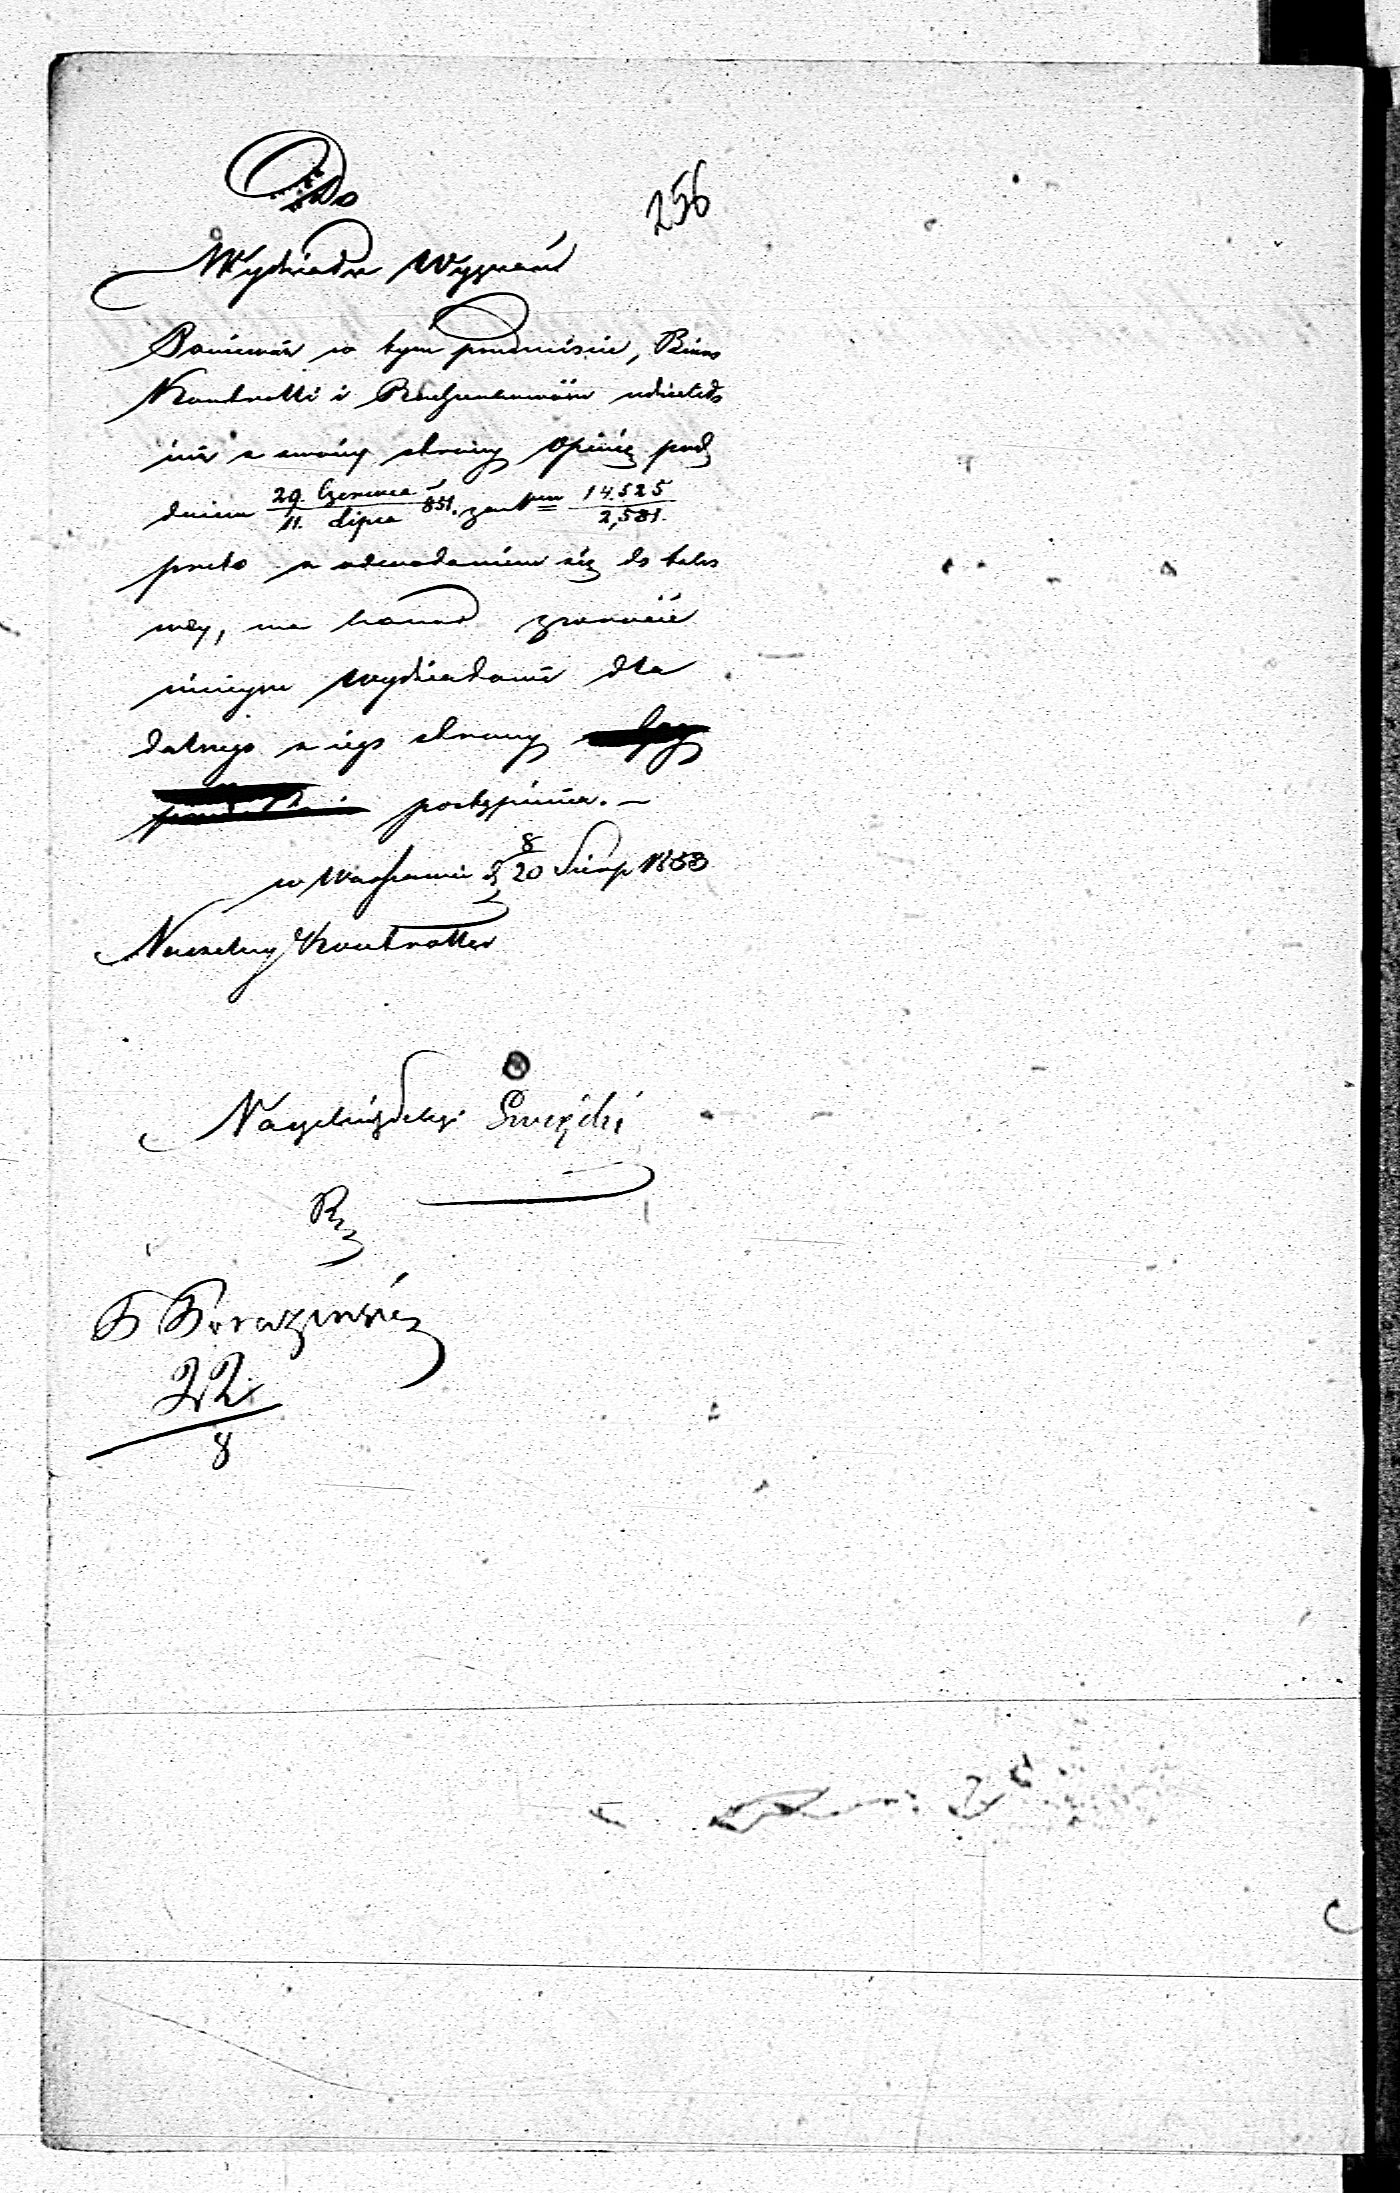 256
Do
Wydziału Wyznań
Ponieważ w tym przedmiocie, Biuro
Kontrolli i Rachunkowości udzieliło
już z swojéj strony opinię pod
dniem 29 Czerwca / 11 Lipca 851. za Nrem 14.525 / 2,581.
przeto z odwołaniem się do tako
wéy, ma honor zwrócić
niniejsze Wydziałowi dla
dalszego z jego strony
postąpienia. –
w Warszawie d 8/20 Sierp 1853
Naczelny Kontroller
Naczelnik Sekcji
22
8